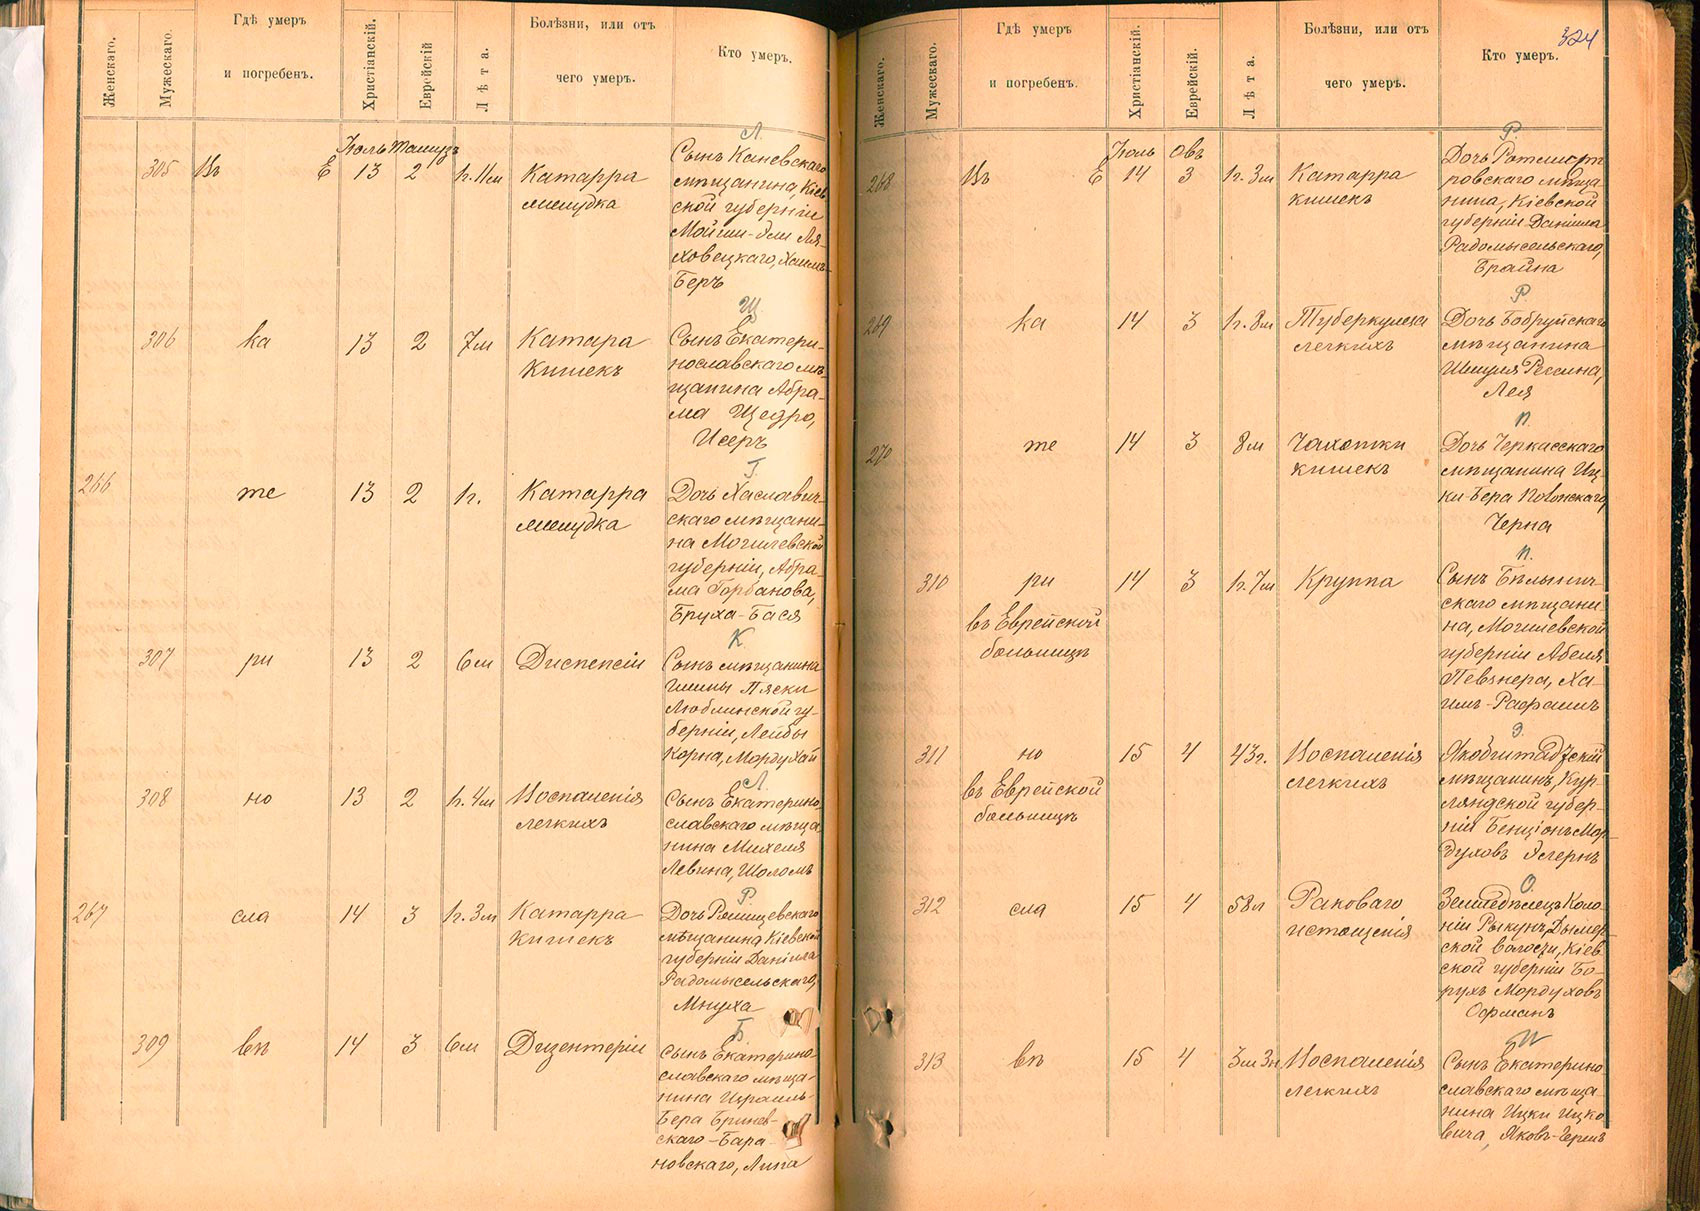 Женскаго.
Мужескаго.
Гдѣ умеръ
и погребенъ.
Христіанскій.
Еврейскій
Лѣта.
Болѣзни, или отъ
чего умеръ.
Кто умеръ.
Іюль Тамузъ
Л.
305 Въ Е 13 2 1г. 11м Катарра
желудка
Сынъ Каневскаго
мѣщанина, Кіев
ской губерніи
ховецкаго, Хаимъ-
Беръ
Щ
306 ка 13 2 7м Катара
кишекъ
Сынъ Екатери-
нославскаго мѣ-
щанина Абра-
ма Щедро,
Исеръ
Г
266 те 13 2 1г. Катарра
желудка
Дочь Хославич-
скаго мѣщани-
на Могилевской
губерніи, Абра-
ма Горбанова,
Бруха-Бася
К.
307 ри 13 2 6м Диспепсіи
Сынъ мѣщанина
гмины Пяски
Люблинской гу-
берніи, Лейбы
Корна, Мордухай
Л.
308 но 13 2 1г. 4м Воспаленія
легкихъ
Сынъ Екатерино
славскаго мѣща
нина Михеля
Левина, Шоломъ
Р.
267 сла 14 3 1г. 3м Катарра
кишекъ
мѣщанина Кіевской
губерніи Даніила
Радомысельскаго,
Мнуха
Б
309 вѣ 14 3 6м Дизентеріи
Сынъ Екатерино-
славскаго мѣща-
нина Израиль-
Бера Бринев-
скаго-Бара-
новскаго, Липа
324
Женскаго.
Мужескаго.
Гдѣ умеръ
и погребенъ.
Христіанскій.
Еврейскій.
Лѣта.
Болѣзни, или отъ
чего умеръ.
Кто умеръ.
Іюль Овъ
Р.
268 Въ Е 14 3 1г. 3м Катарра
кишекъ
Дочь Ротмистр
ровскаго мѣща-
нина, Кіевской
губерніи Даніила
Радомысельскаго,
Брайна
Р
269 ка 14 3 1г. 8м Туберкулеза
легкихъ
Дочь Бобруйскаго
мѣщанина
Лея
П.
270 те 14 3 8м Чахотки
кишекъ
Дочь Черкасскаго
мѣщанина Иц-
ки-Бера Повонскаго,
Черна
П.
310 ри 14 3 1г. 7м Круппа
въ Еврейской
больницѣ
Сынъ Бѣлынич-
скаго мѣщани
на, Могилевской
губерніи Абеля
Певзнера, Ха-
имъ-Рафаилъ
З.
311 но 15 4 43г. Воспаленія
легкихъ
въ Еврейской
больницѣ
Якобштадтскій
мѣщанинъ, Кур-
ляндской губер-
ніи Бенціонъ Мор-
духовъ
О.
312 сла 15 4 58л Раковаго
истощенія
Земледѣлецъ Коло-
ніи Рыкунъ, Дымер-
ской волости, Кіев-
ской губерніи Бо-
рухъ Мордуховъ
Осрманъ
И
313 вѣ 15 4 3м 3н Воспаленія
легкихъ
Сынъ Екатерино
славскаго мѣща-
нина Ицки Ицко
вича, Яковъ-Герцъ